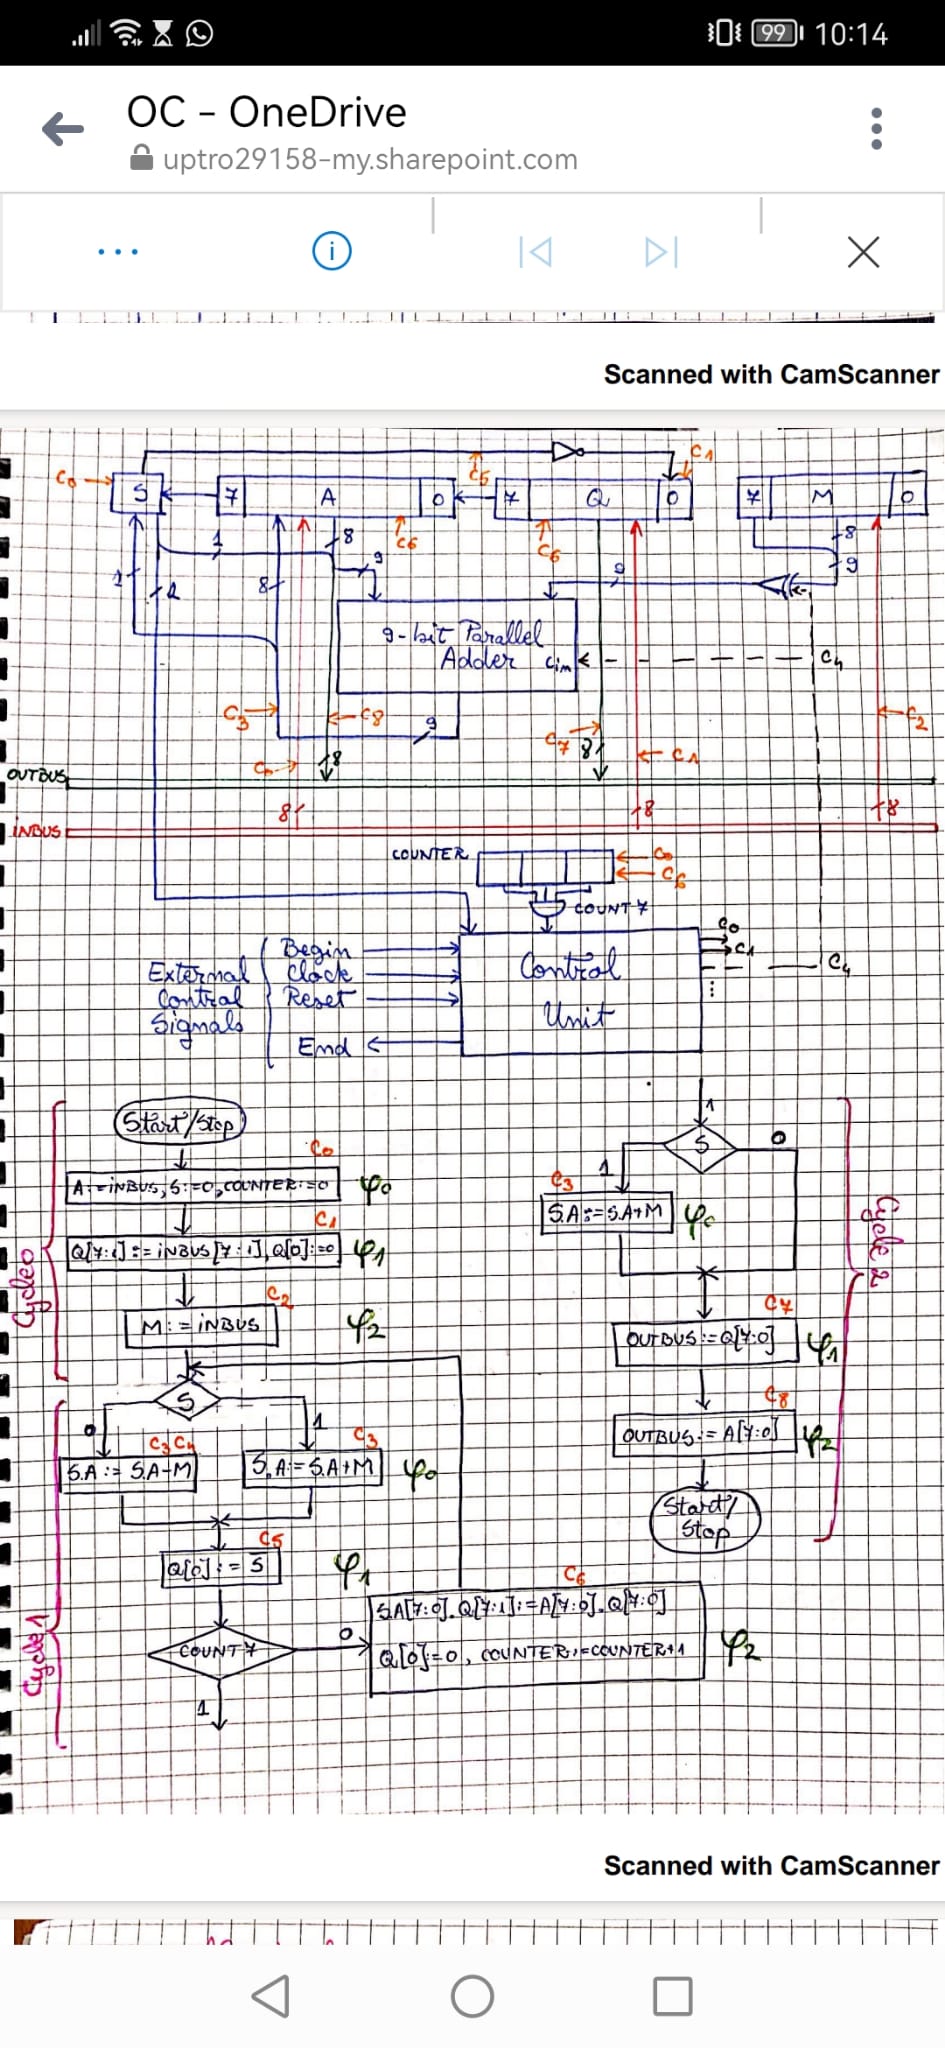 99 10:14
OC - OneDrive
uptro29158-my.sharepoint.com
Scanned with CamScanner
C0 S 7 A 0 C5 7 Q 0 C1 7 M 0
1 8 C6 9 C6 9 8 9
1 2 8
9-bit Parallel
Adder Cin C4
C3 C8 9 C7 8 C1 C2
C0 8
OUTBUS
8 8 8
INBUS
COUNTER C0
C6
COUNT7
External Control Signals
Begin
Clock
Reset
End
Control
Unit
C0
C1
C4
Cycle0
Start/Stop
C0
A:=INBUS, S:=0, COUNTER:=0 φ0
C1
Q[7:1]:=INBUS[7:1], Q[0]:=0 φ1
C2
M:=INBUS φ2
Cycle1
S
0 1
C3 C4 C3
S.A:=S.A-M S.A:=S.A+M φ0
C5
Q[0]:=S̅ φ1
COUNT7
0
1
C6
S.A[7:0].Q[7:1]:=A[7:0].Q[7:0]
Q[0]=0, COUNTER:=COUNTER+1 φ2
1
S 0
1
C3
S.A:=S.A+M φ0
C7
OUTBUS:=Q[7:0] φ1
C8
OUTBUS:=A[7:0] φ2
Start/
Stop
Cycle 2
Scanned with CamScanner